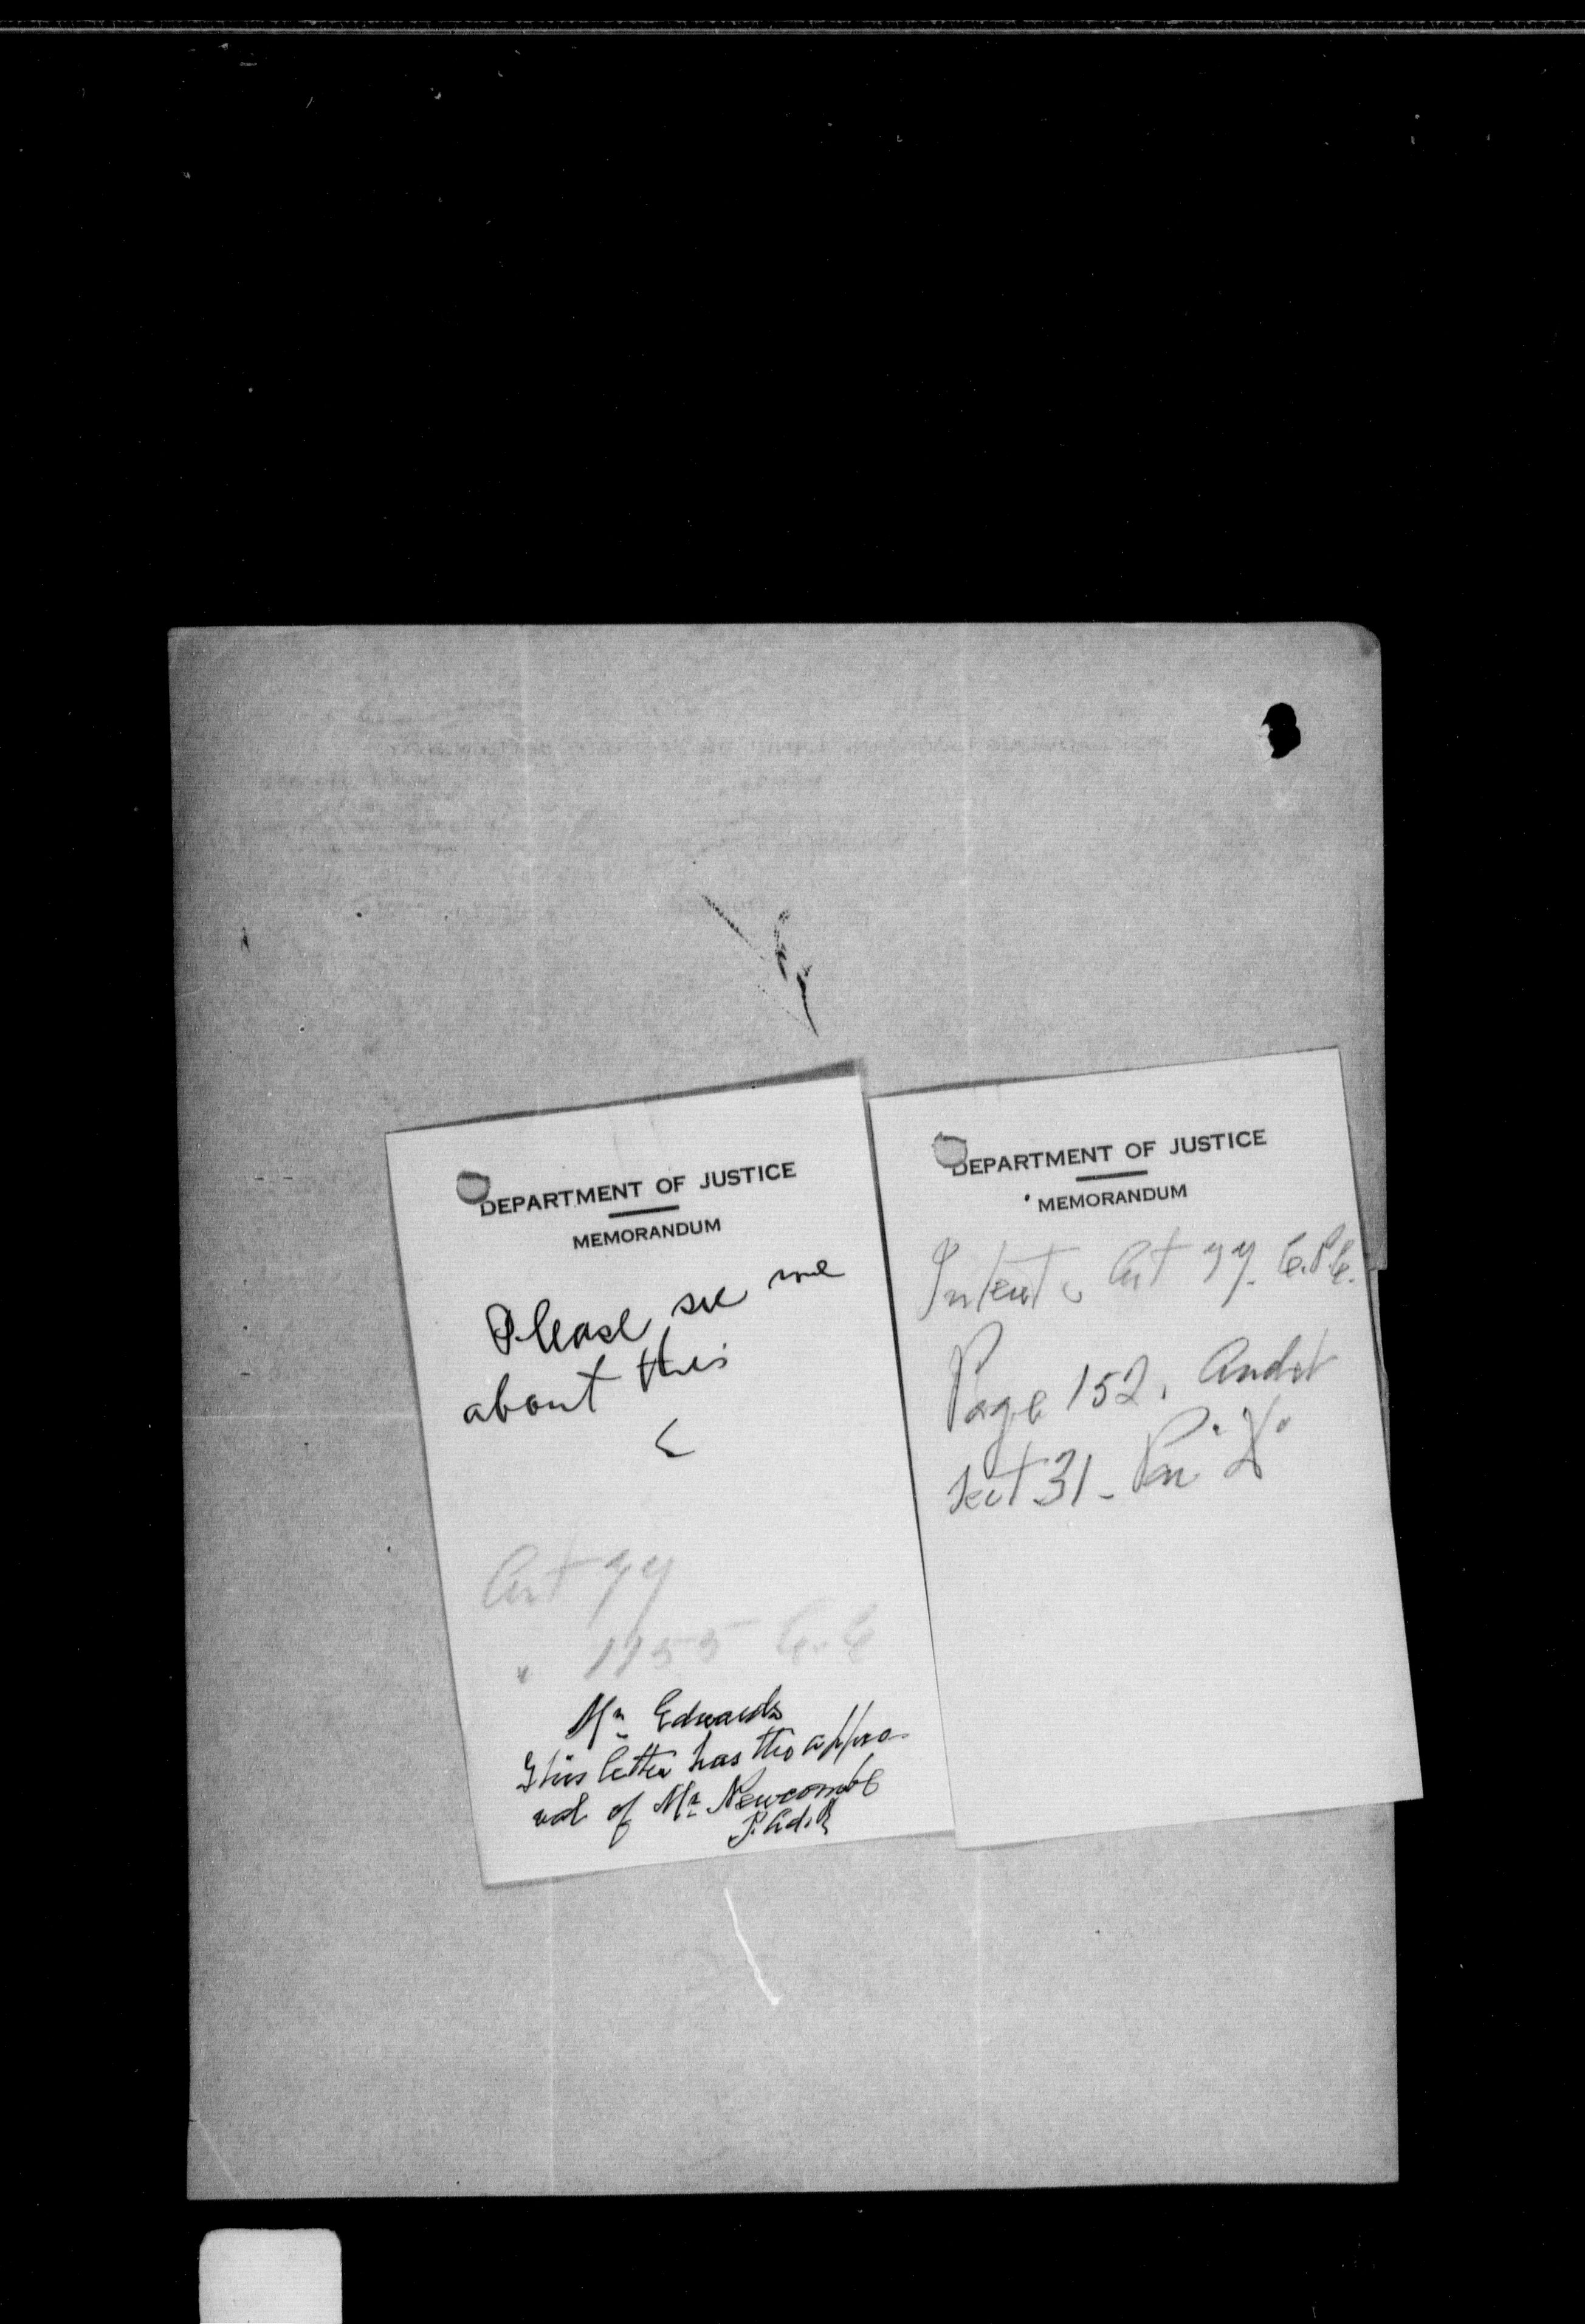 DEPARTMENT OF JUSTICE
MEMORANDUM
Please see me
about this
Art 77
" 1155 C.C
Mr Edwards
This letter has the appro-
val of Mr Newcombe
DEPARTMENT OF JUSTICE
MEMORANDUM
Art 77. C.P.C.
Page 152.
sect 31 - Par